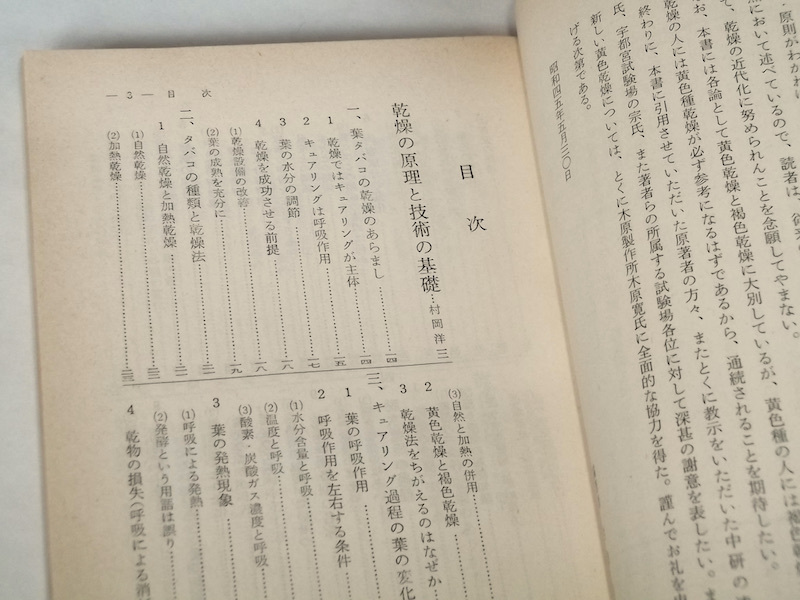 原則がわかれば
において述べているので、読者は、
て、乾燥の近代化に努められんことを念願してやまない。
お、本書には各論として黄色乾燥と褐色乾燥に大別しているが、黄色種の人には褐色乾
乾燥の人には黄色種乾燥が必ず参考になるはずであるから、通続されることを期待したい。
終わりに、本書に引用させていただいた原著者の方々、またとくに教示をいただいた中研の
氏、宇都宮試験場の宗氏、また著者らの所属する試験場各位に対して深甚の謝意を表したい。ま
新しい黄色乾燥については、とくに木原製作所木原寛氏に全面的な協力を得た。謹んでお礼を
げる次第である。
昭和四五年五月三〇日
目次
乾燥の原理と技術の基礎…村岡洋 三
一、葉タバコの乾燥のあらまし……一四
1 乾燥ではキュアリングが主体……一五
2 キュアリングは呼吸作用……一七
3 葉の水分の調節……一八
4 乾燥を成功させる前提……一八
(1)乾燥設備の改善……一九
(2)葉の成熟を充分に……
二、タバコの種類と乾燥法……
1 自然乾燥と加熱乾燥……
(1)自然乾燥……
(2)加熱乾燥……
(3)自然と加熱の併用……
2 黄色乾燥と褐色乾燥……
3 乾燥法をちがえるのはなぜか
三、キュアリング過程の葉の変化
1 葉の呼吸作用……
2 呼吸作用を左右する条件
(1)水分含量と呼吸……
(2)温度と呼吸……
(3)酸素・炭酸ガス濃度と呼吸
3 葉の発熱現象……
(1)呼吸による発熱……
(2)発酵という用語は誤り
4 乾物の損失(呼吸による消
— 3 — 目次